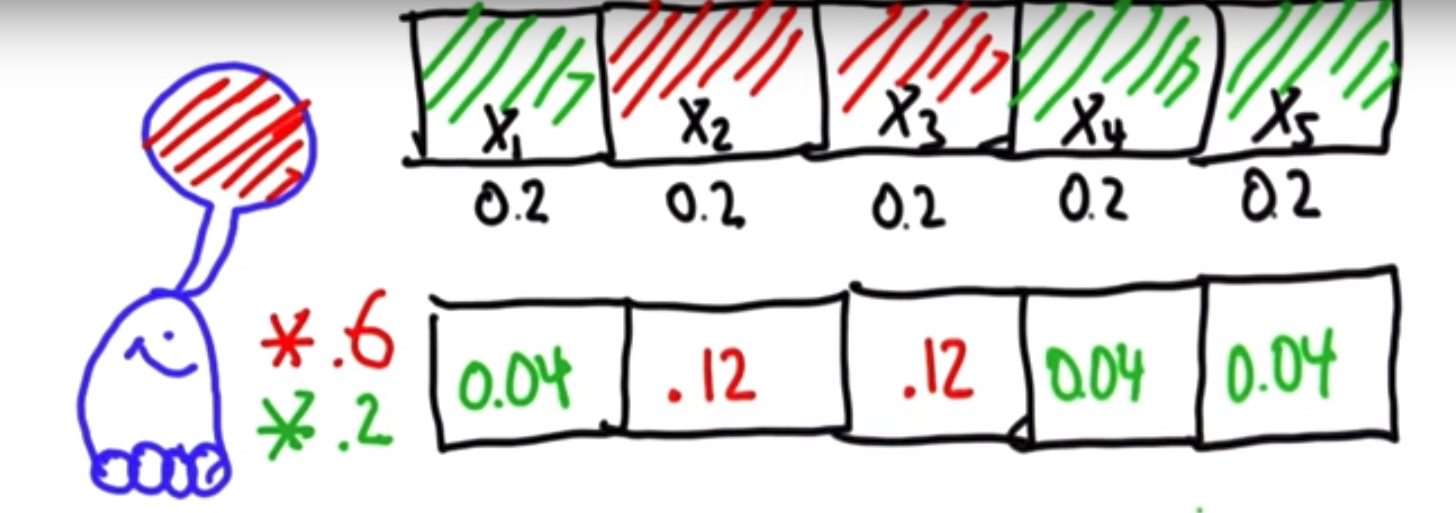 X1 X2 X3 X4 X5
0.2 0.2 0.2 0.2 0.2
*.6
*.2
0.04 .12 .12 0.04 0.04